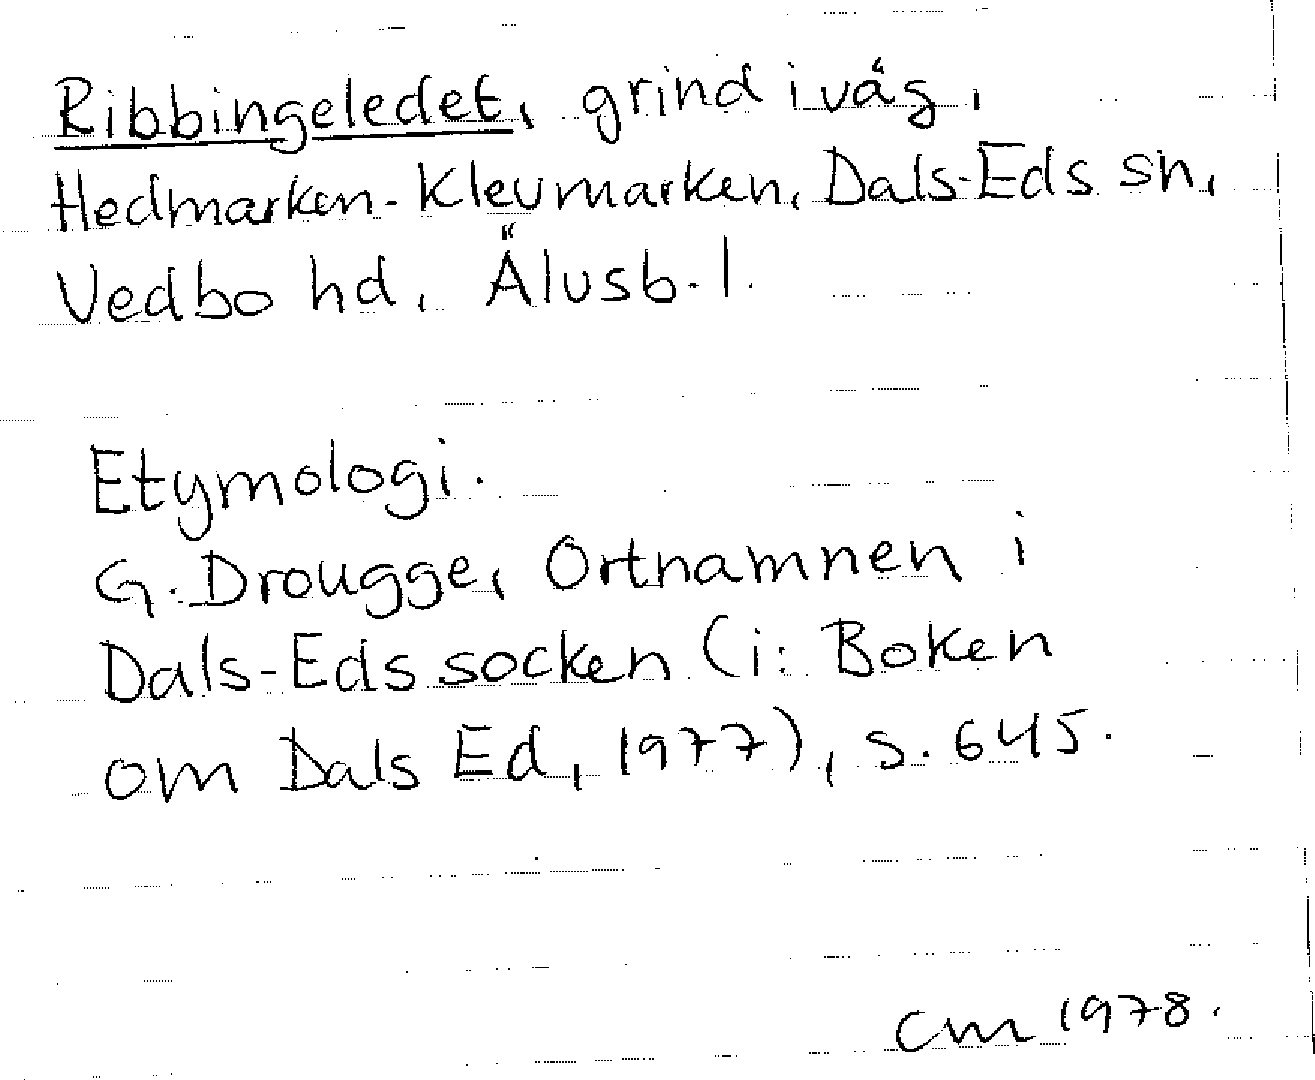 Ribbingeledet, grind i väg,
Hedmarken-Klevmarken, Dals-Eds sn,
Vedbo hd, Älvsb. l.
Etymologi.
G. Drougge, Ortnamnen i
Dals-Eds socken (i: Boken
om Dals Ed, 1977), s. 645.
CM 1978.